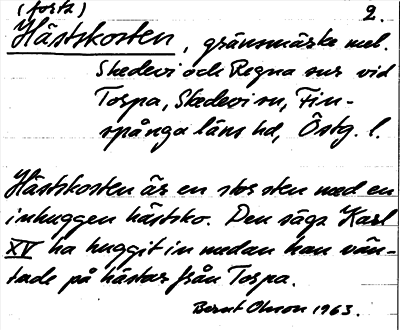 (forts) 2.
Hästskosten, gränsmärke mel.
Skedevi och Regna snr vid
Torpa, Skedevi sn, Fin-
spånga läns hd, Östg. l.
Hästskosten är en stor sten med en
inhuggen hästsko. Den säga Karl
XV ha huggit in medan han vän-
tade på hästar från Torpa.
Bernt Olsson 1963.